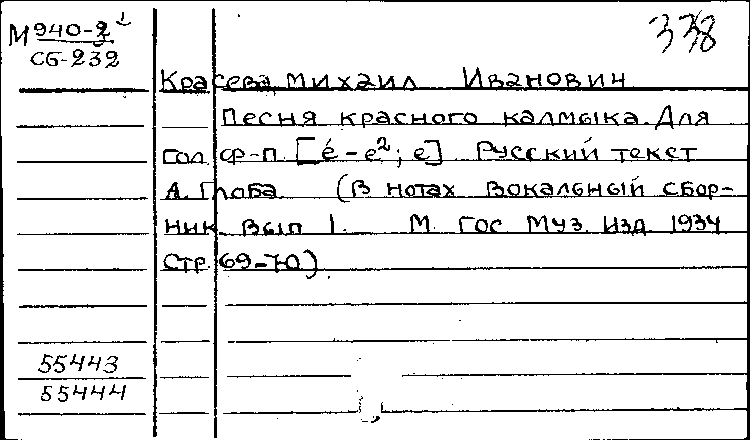 М 940-2
338
СБ-232
Красева, Михаил Иванович
Песня красного калмыка. Для
гол. ф-п. [é-e²; e] Русский текст
А. Глоба (В нотах Вокальный сбор-
ник Вып 1. М. Гос Муз. Изд. 1934
Стр. 69-70)
55443
55444